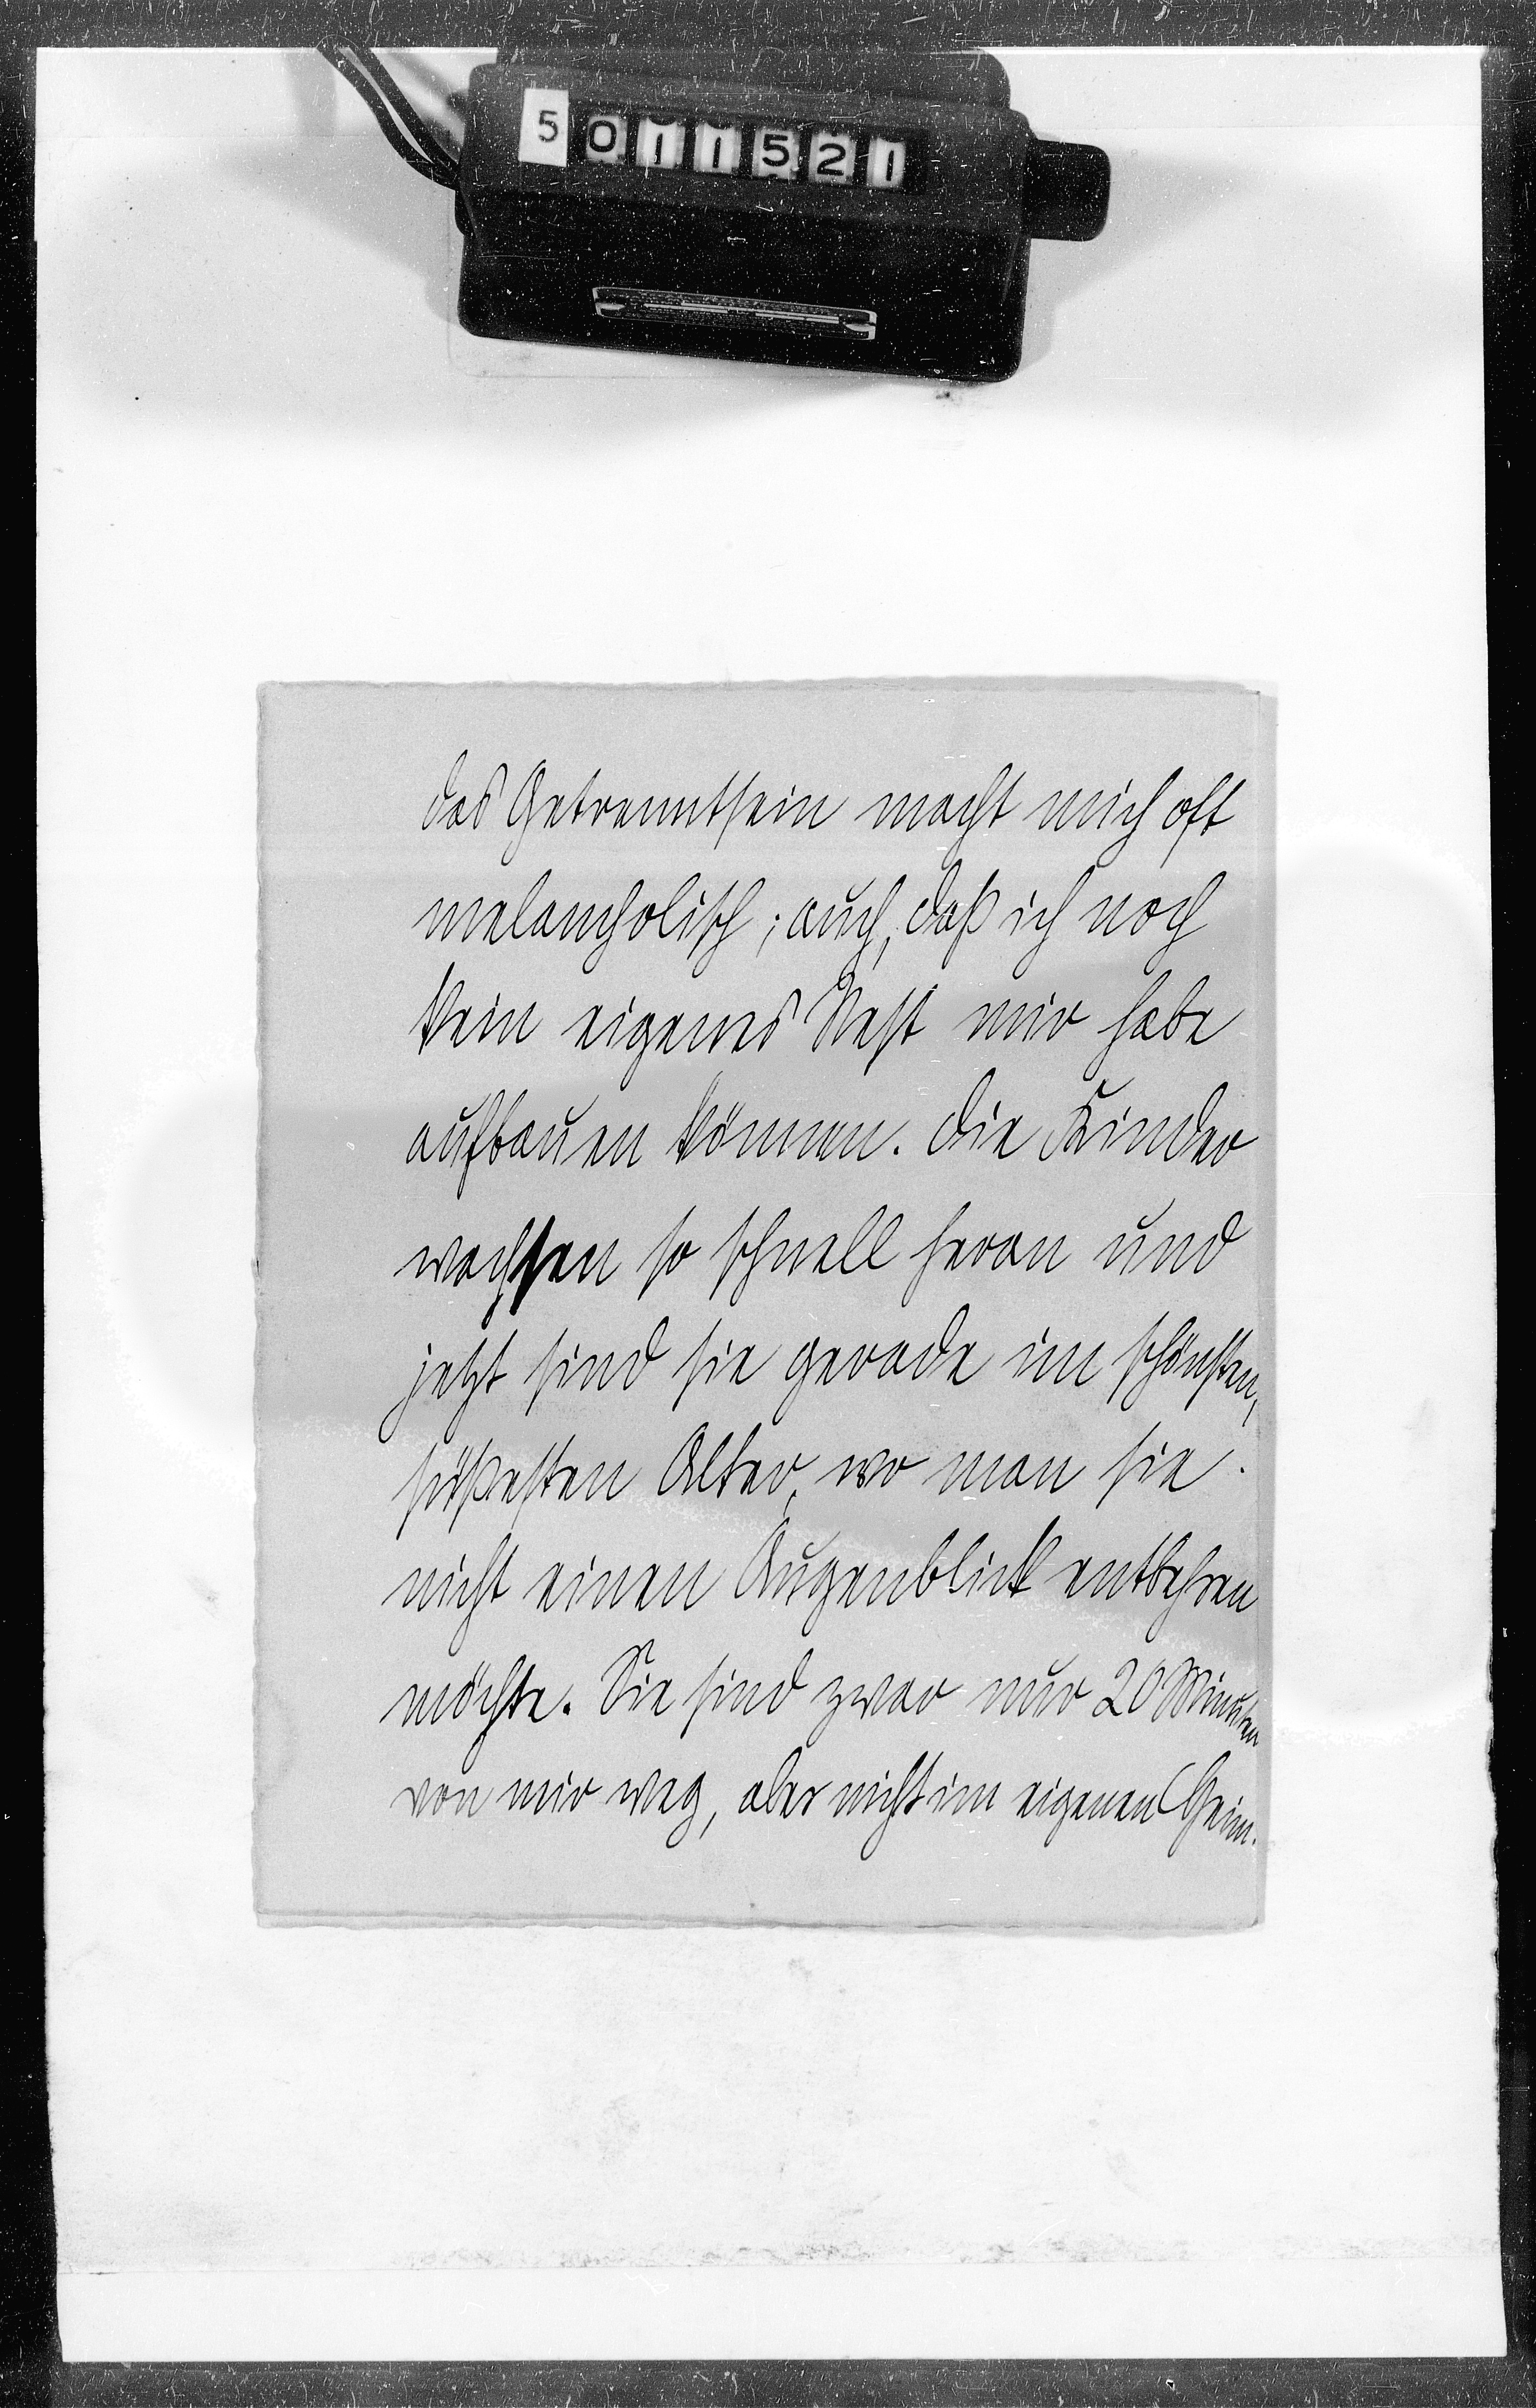 5011521
das Getrenntsein macht mich oft
melancholisch; auch, daß ich noch
kein eigenes Nest mir habe
aufbauen können. Die Kinder
wachsen so schnell heran und
jetzt sind sie gerade im schönsten,
süßesten Alter, wo man sie
nicht einen Augenblick entbehren
möchte. Sie sind zwar nur 20 Minuten
von mir weg, aber nicht im eigenen Heim.